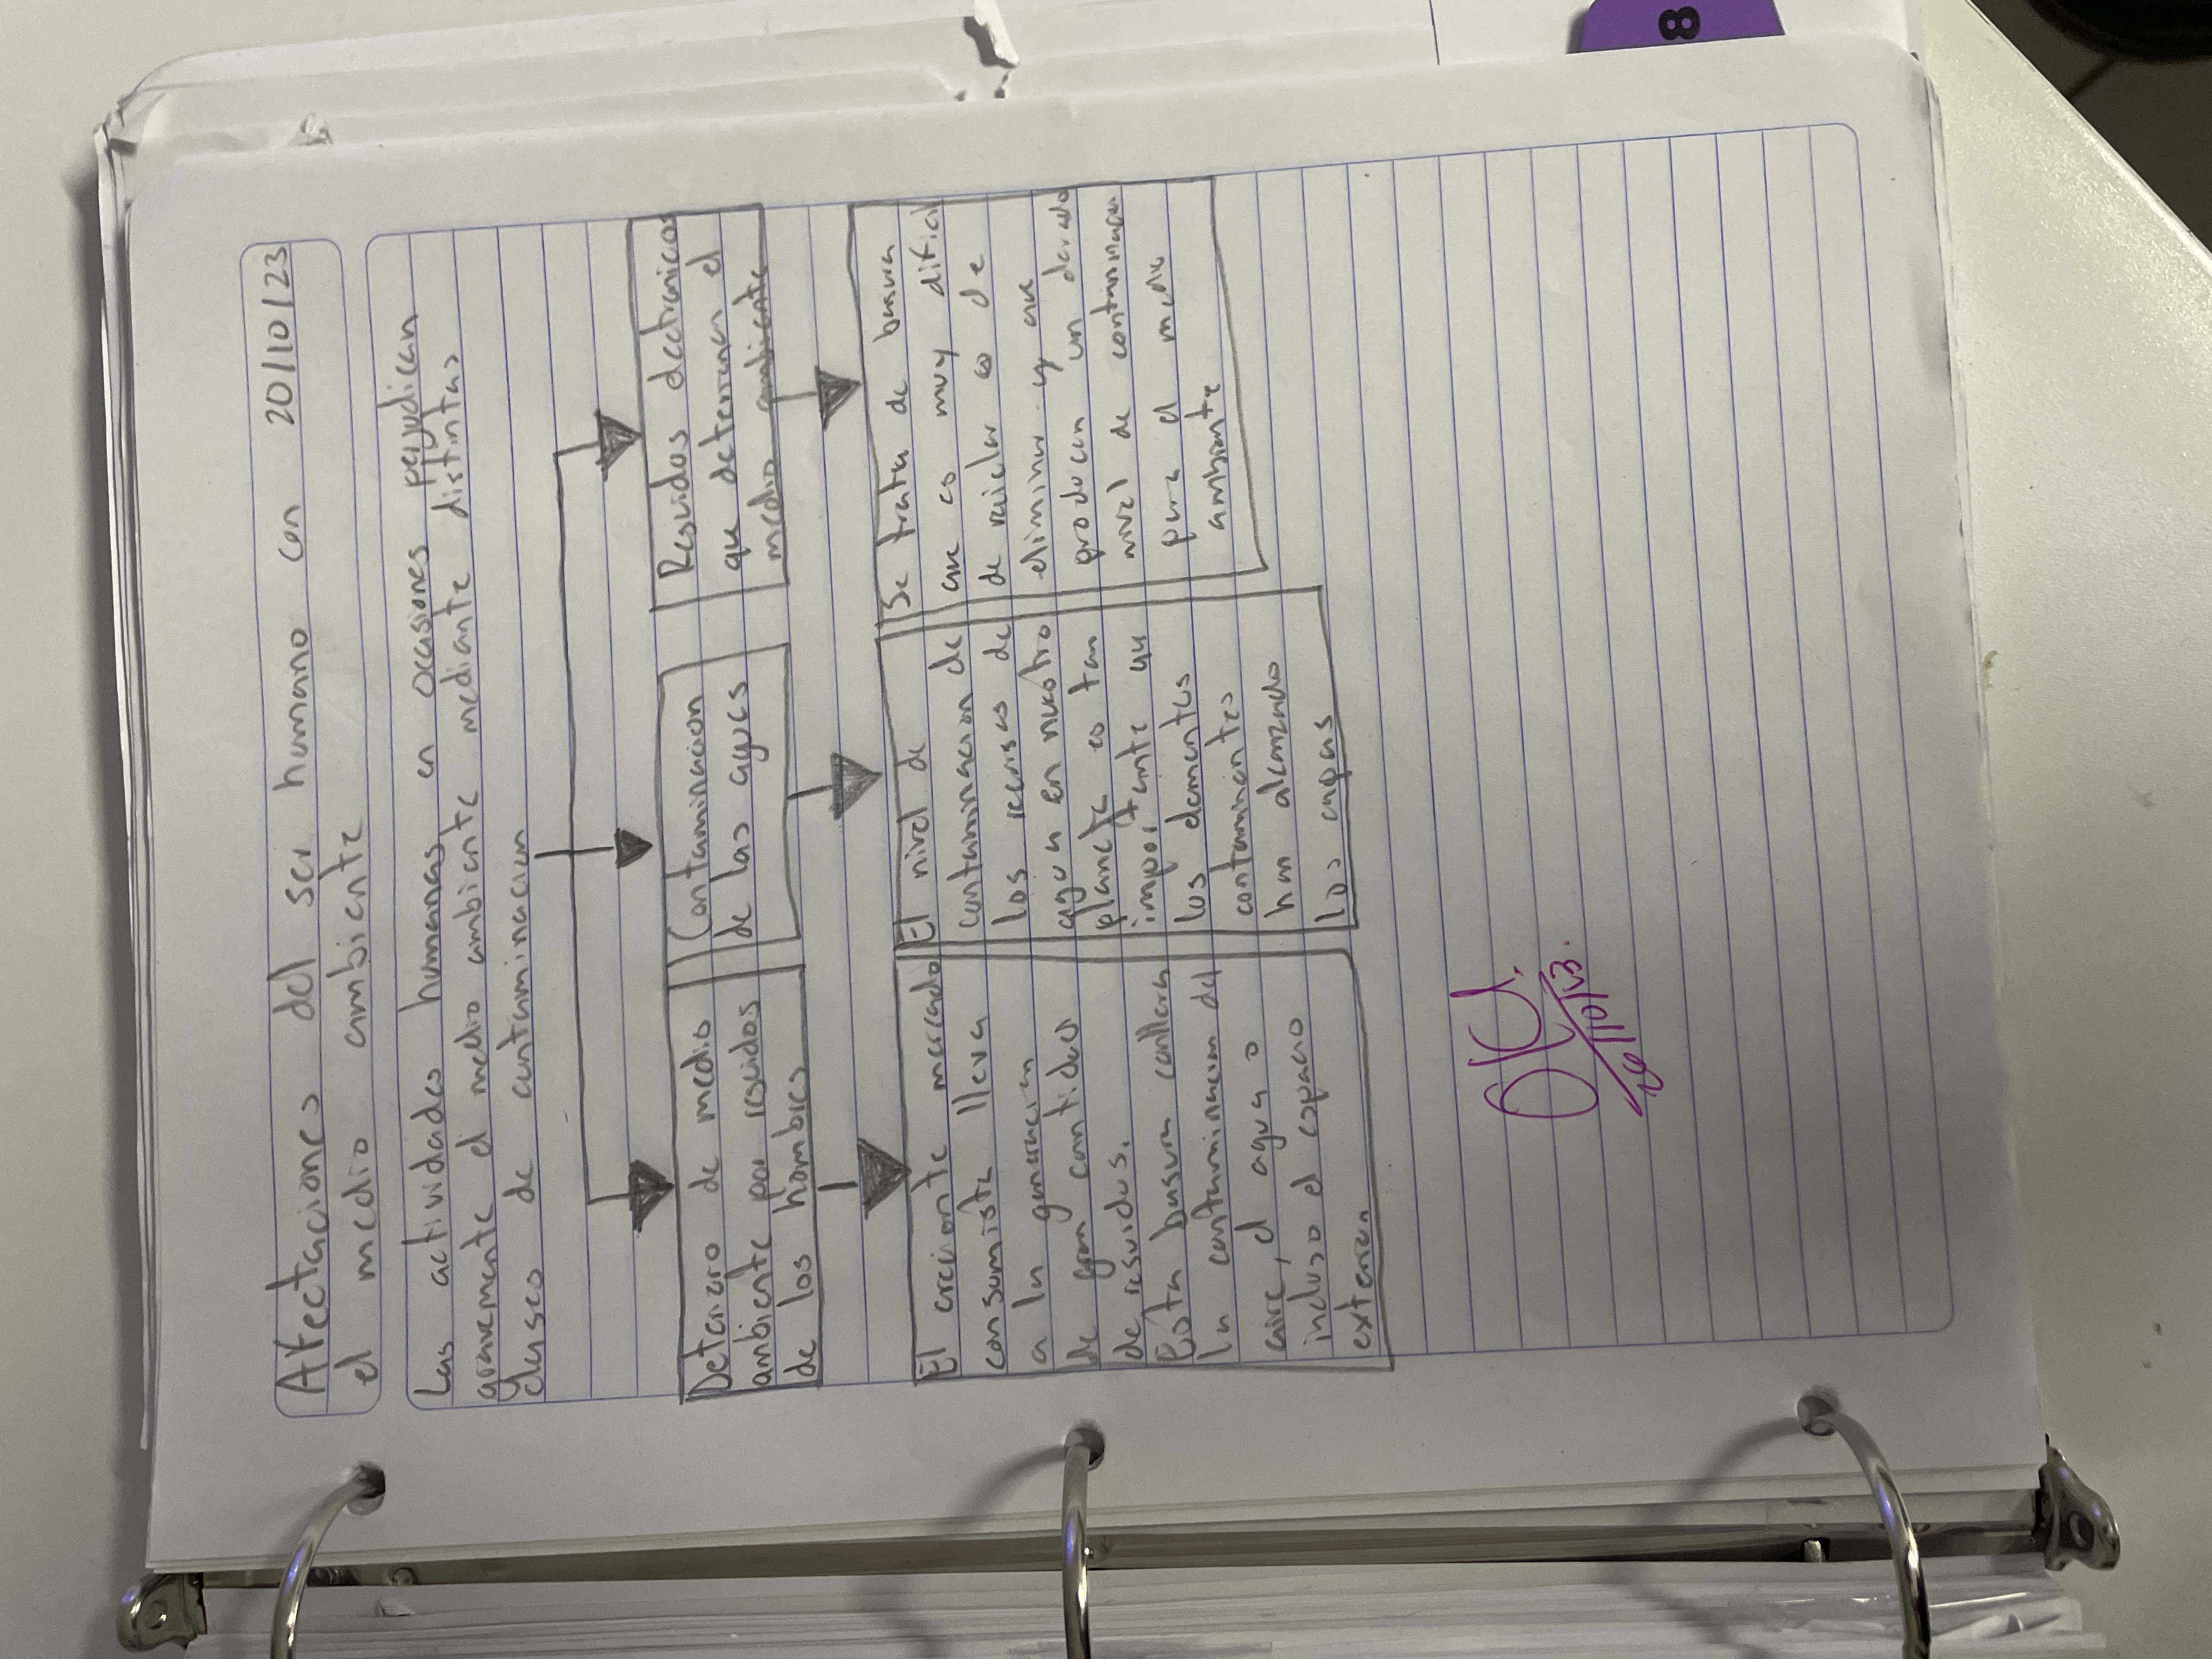 Afectaciones del ser humano con 20/10/23
el medio ambiente
Las actividades humanas en ocasiones perjudican
gravemente el medio ambiente mediante distintas
clases de contaminacion
Deterioro de medio
ambiente por residos
de los hombres
Contaminacion
de las agues
Residos electronicos
que deterioran el
medio ambiente
El creciente mercado
consumista lleva
a la generacion
de gran cantidad
de residuos.
Esta basura conlleva
la contaminacion del
aire, el agua o
incluso el espacio
exterran
El nivel de
contaminacion de
los recursos de
agua en nuestro
planeta es tan
importante que
los elementos
contaminantes
han alcanzado
las capas
Se trata de basura
que es muy dificil
de reciclar o de
eliminar y que
producen un elevado
nivel de contaminacion
para el medio
ambiante
20/10/23.
8